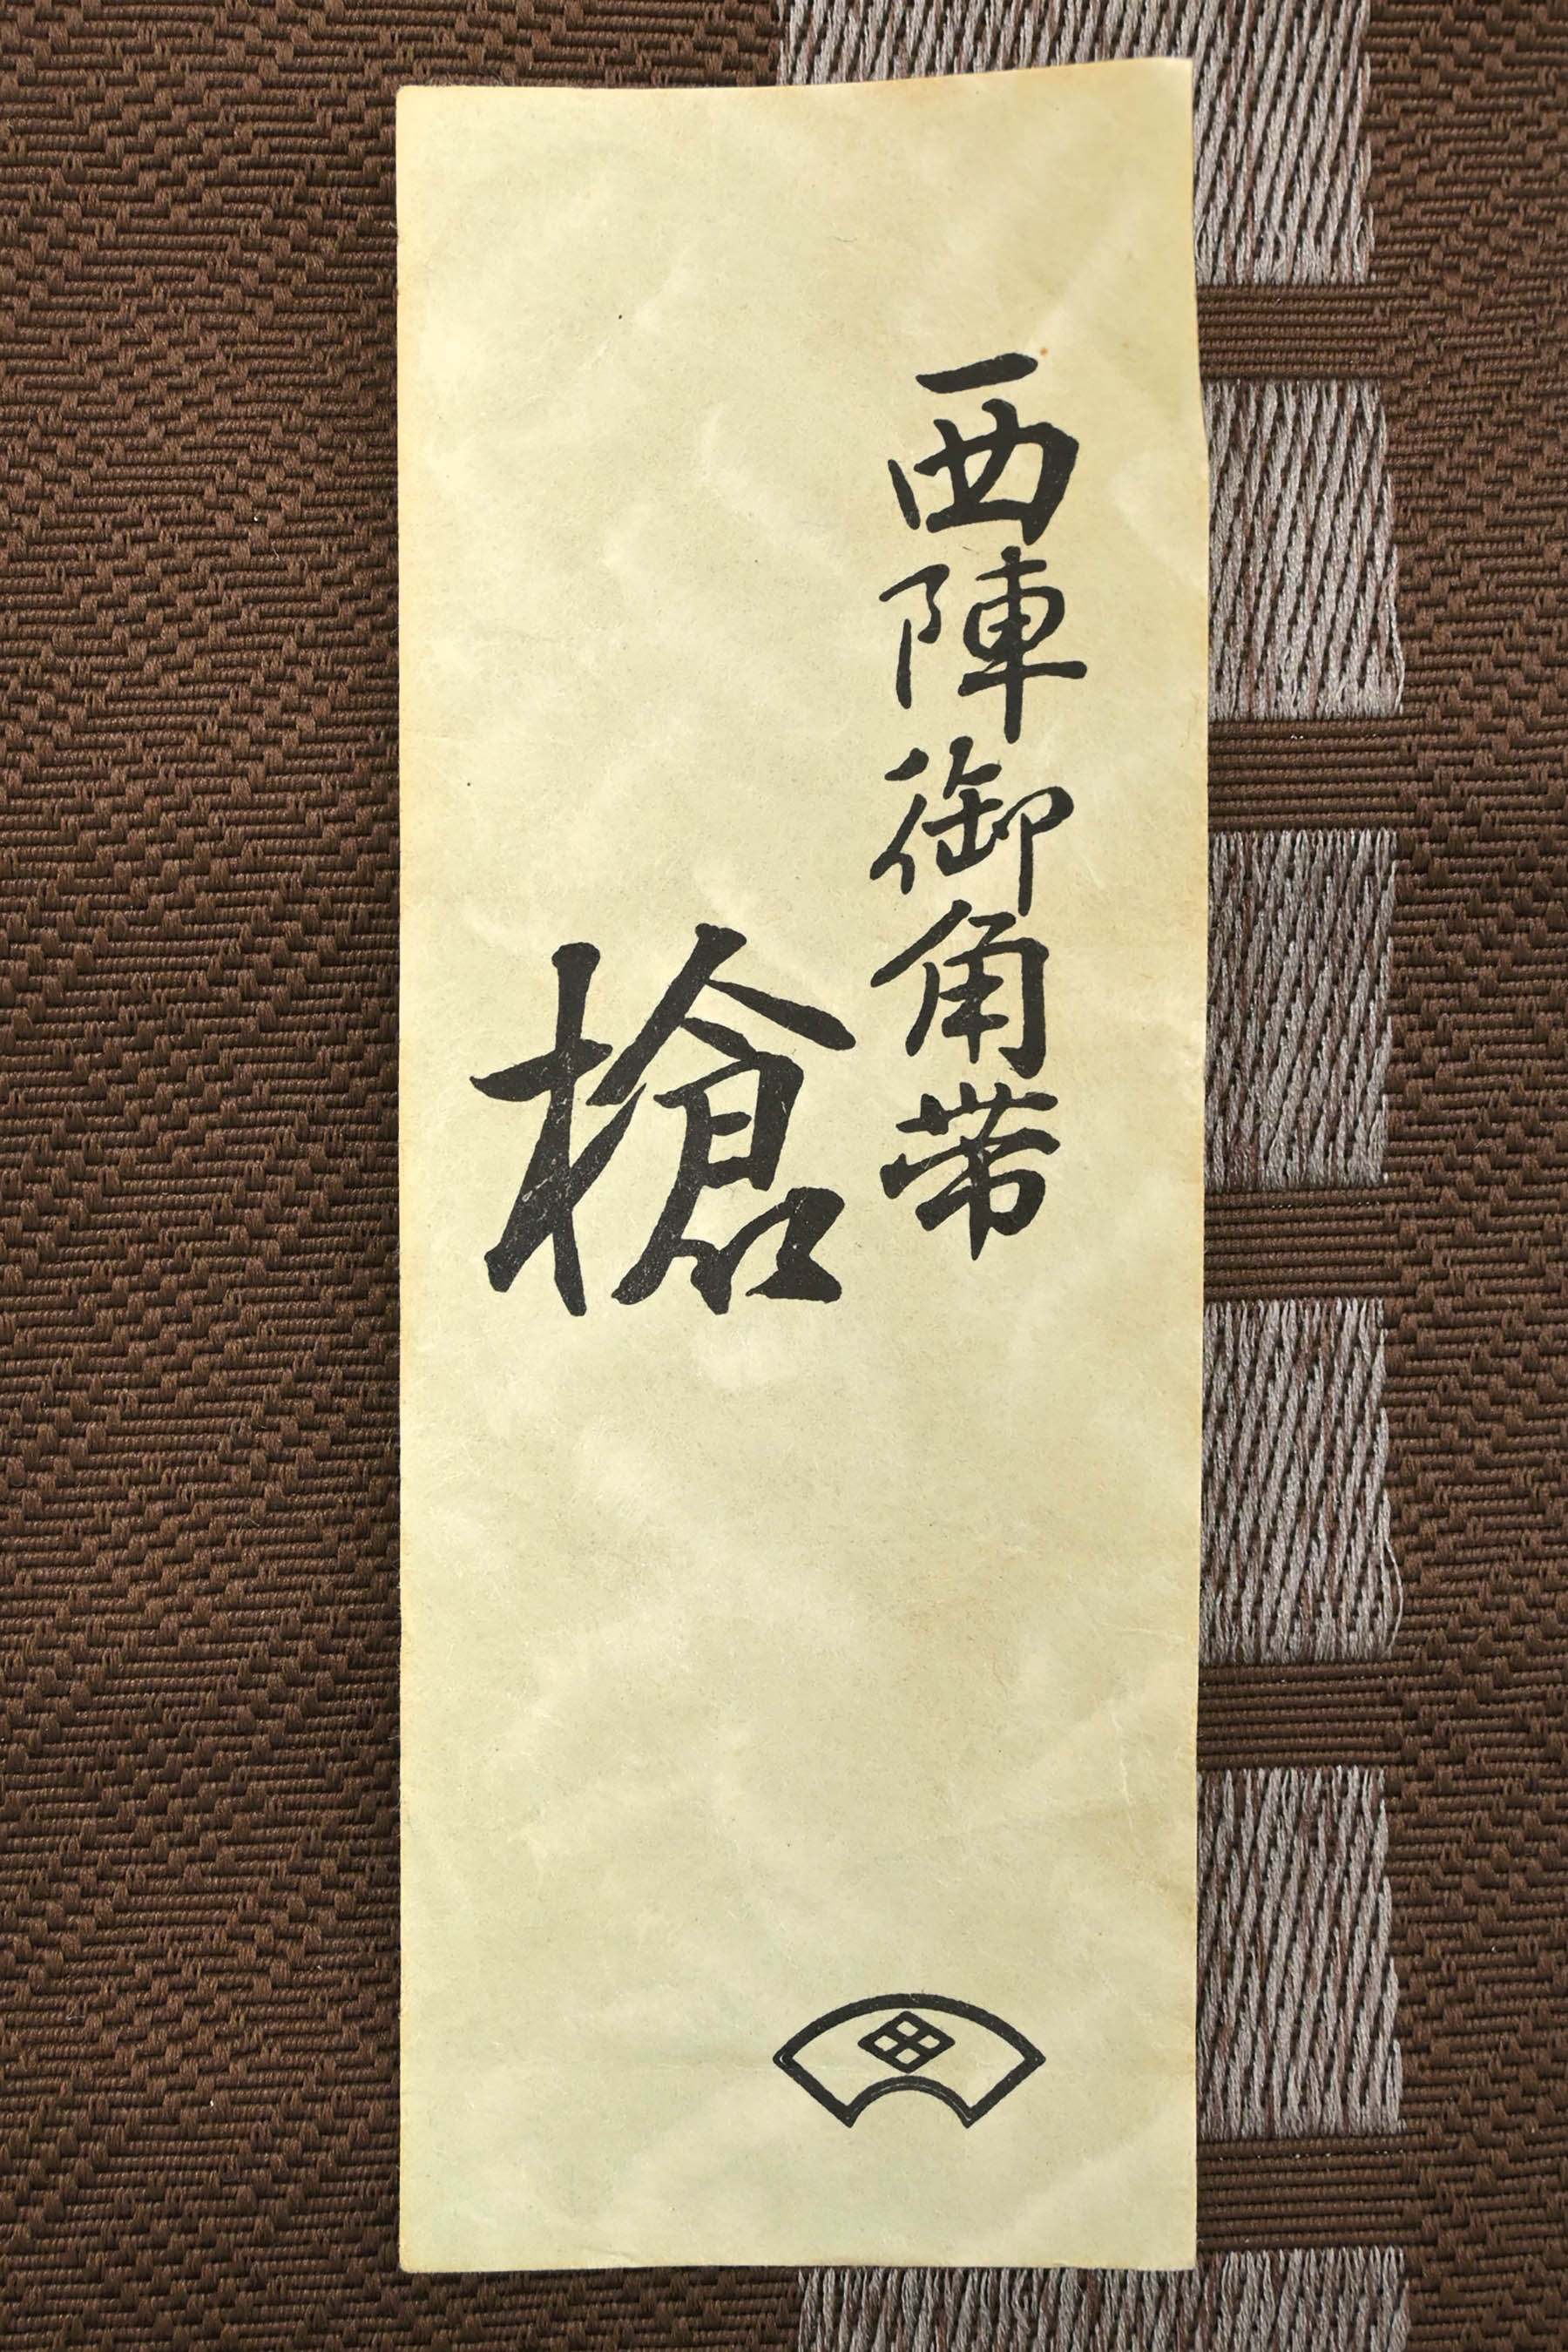 西陣御角帯
槍